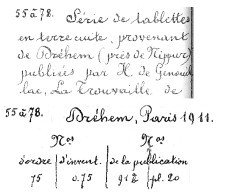 55 à 78. Série de tablettes
en terre cuite, provenant
de Dréhem (près de Nippur)
publiées par H. de Genouil
lac, La Trouvaille de
55 à 78. Dréhem, Paris 1911.
Nos Nos
d'ordre d'invent. de la publication
75 0.75 912 pl. 20